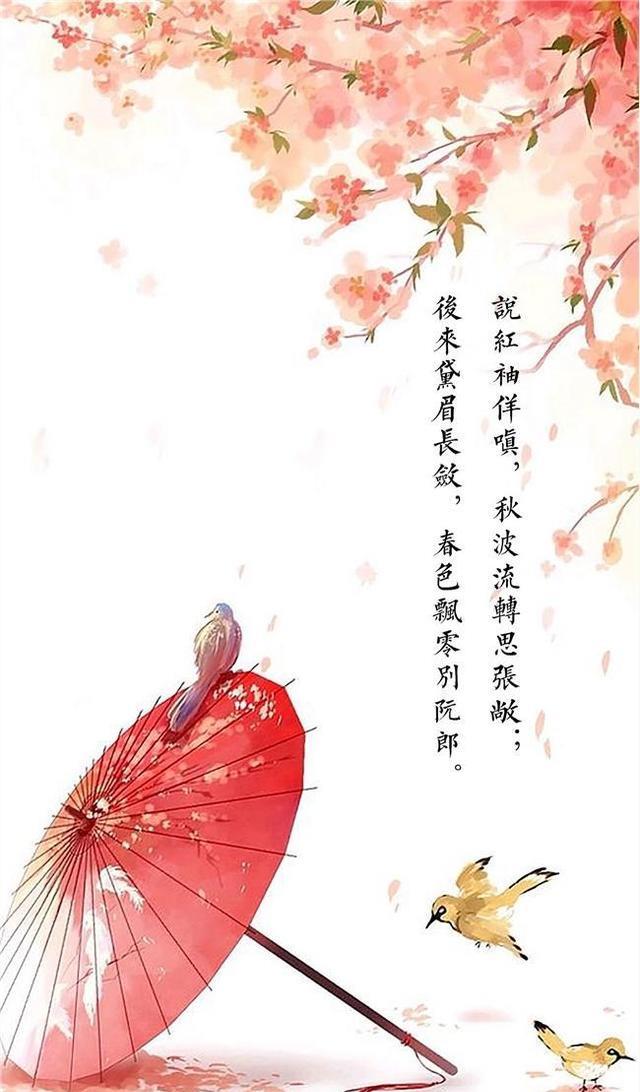 說紅袖佯嗔，秋波流轉思張敞；
後來黛眉長斂，春色飄零別阮郎。